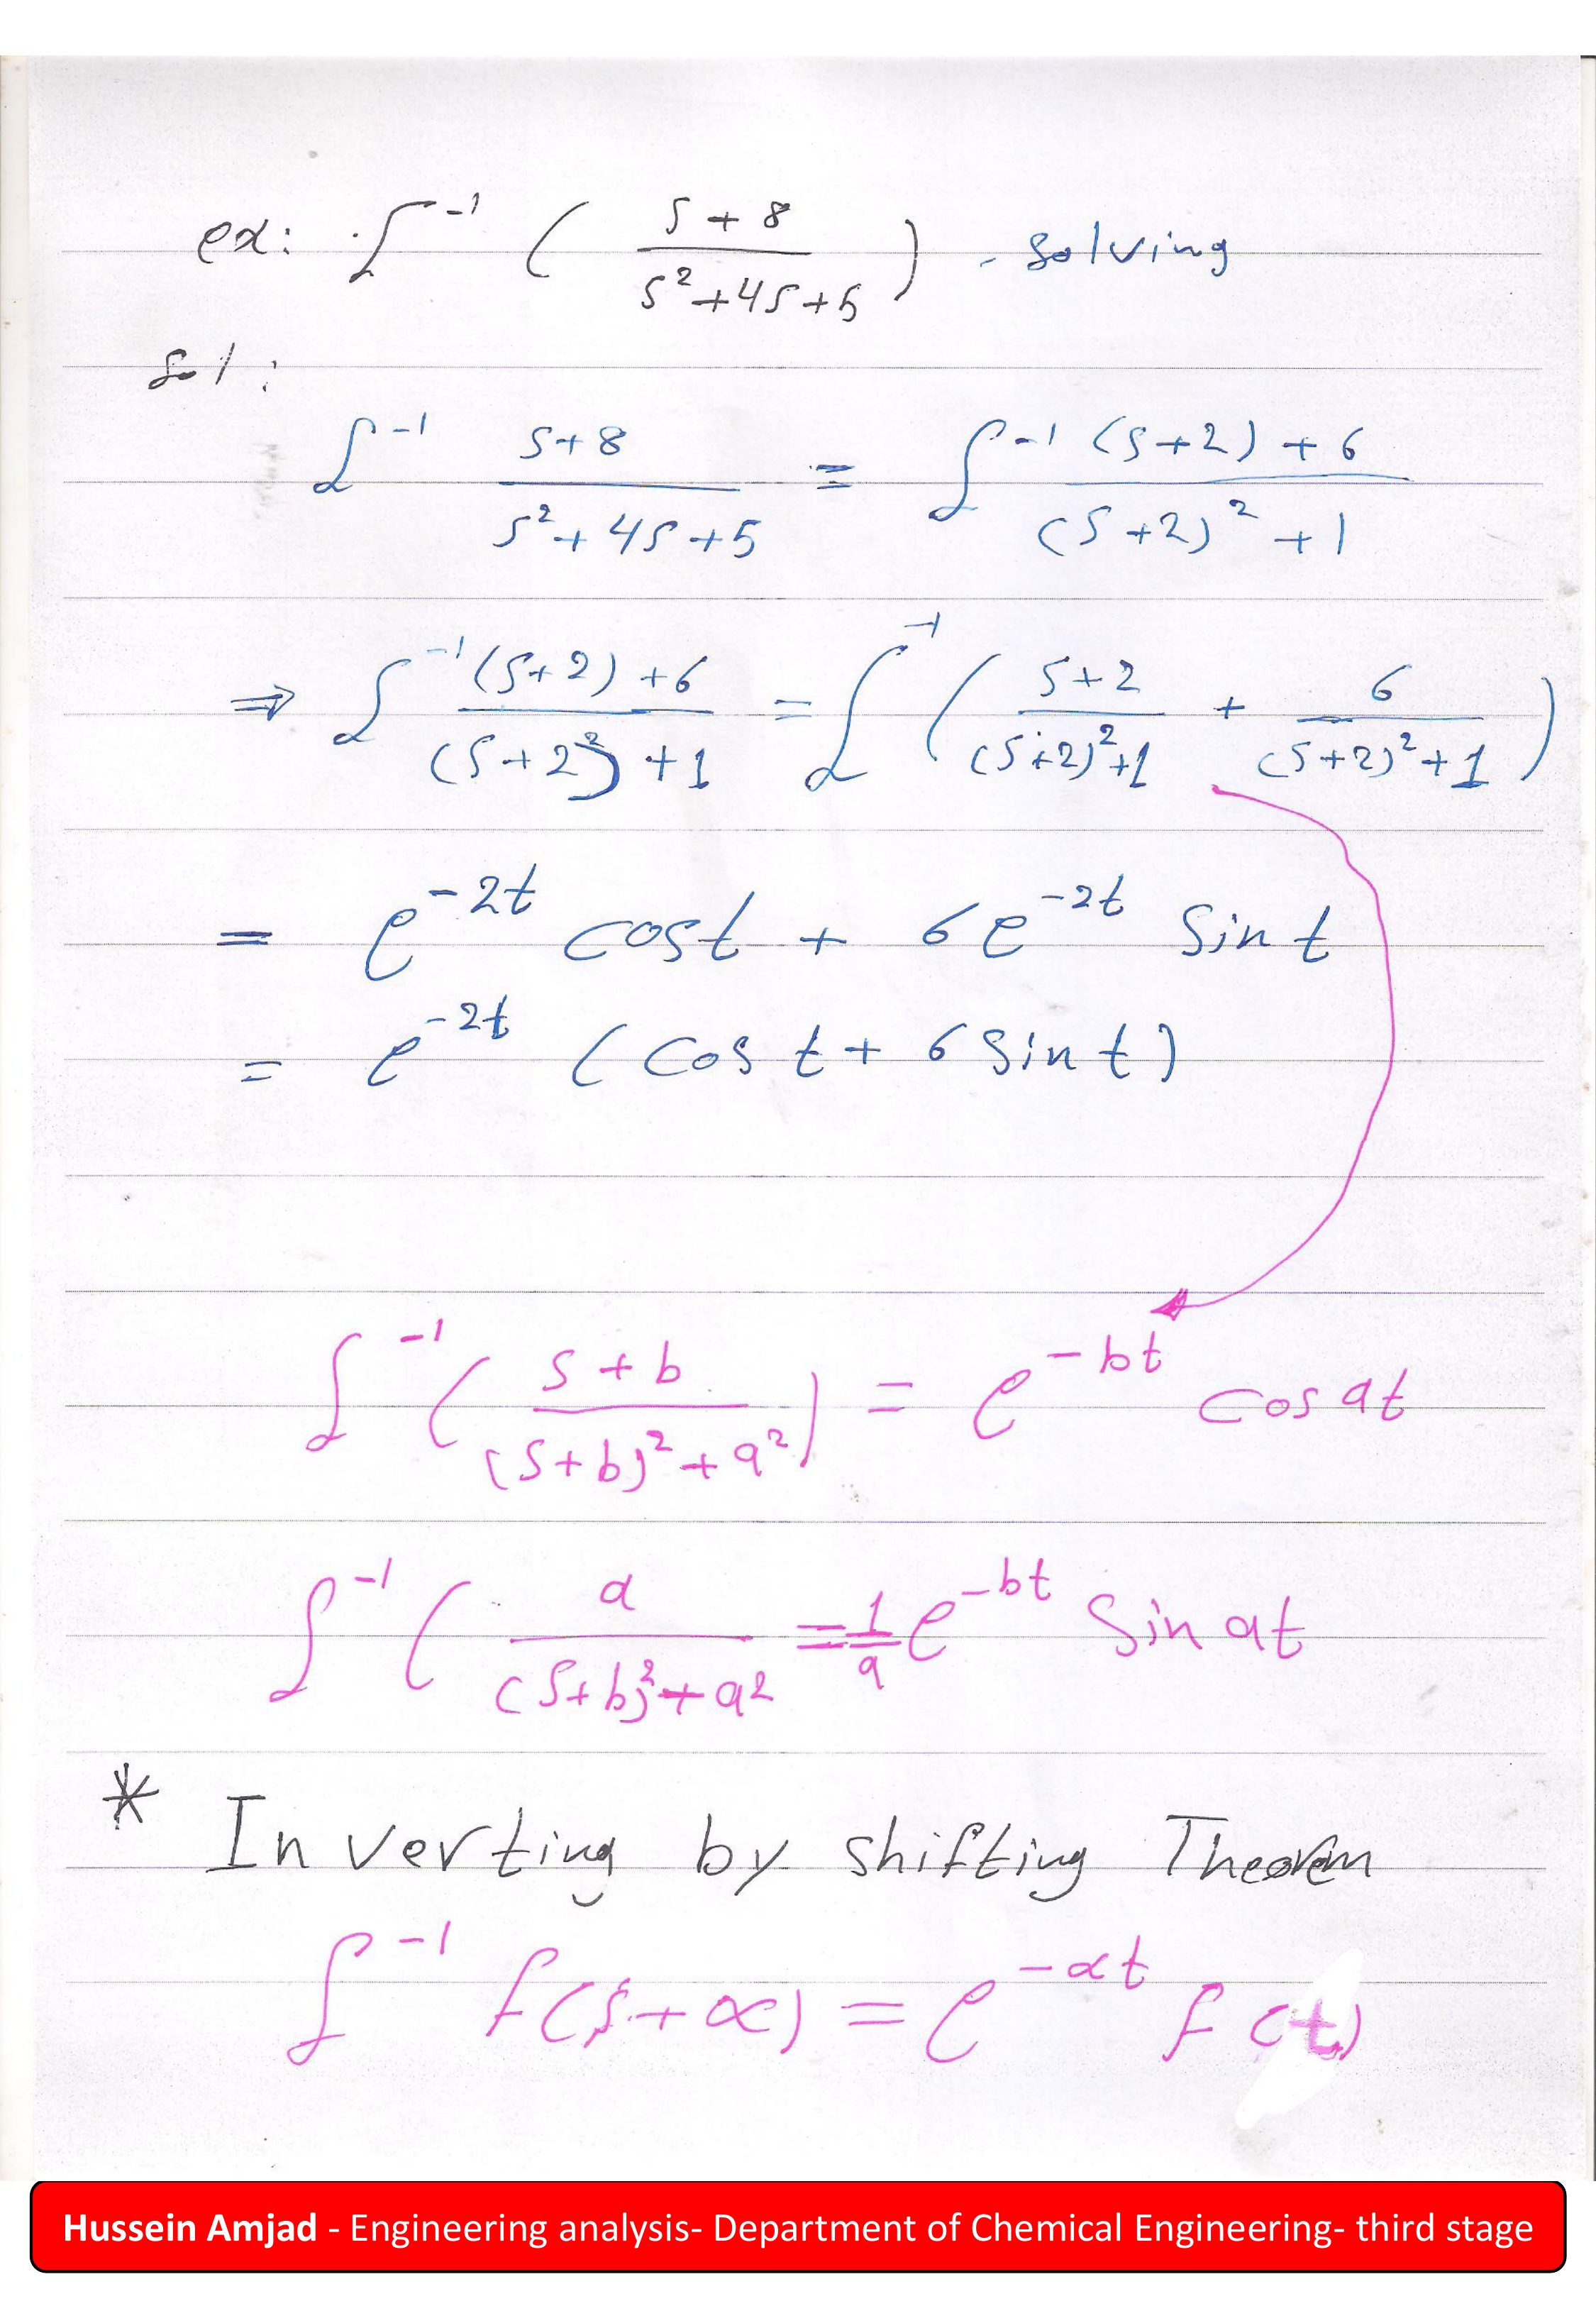 ex: ℒ⁻¹ ( (s+8) / (s²+4s+5) ) - solving
sol:
ℒ⁻¹ (s+8) / (s²+4s+5) = ℒ⁻¹ ((s+2)+6) / ((s+2)²+1)
⇒ ℒ⁻¹ ((s+2)+6) / ((s+2²)+1) = ℒ⁻¹ ( (s+2) / ((s+2)²+1) + 6 / ((s+2)²+1) )
= e^{-2t} cost + 6e^{-2t} sin t
= e^{-2t} (cos t + 6 sin t)
ℒ⁻¹ ( (s+b) / ((s+b)²+a²) ) = e^{-bt} cos at
ℒ⁻¹ ( a / ((s+b)²+a²) = 1/a e^{-bt} sin at
* Inverting by shifting Theorem
ℒ⁻¹ f(s+α) = e^{-αt} f(t)
Hussein Amjad - Engineering analysis- Department of Chemical Engineering- third stage